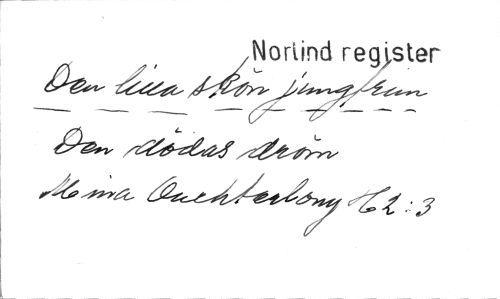 Norlind register
Den lilla skön jungfrun
Den dödas dröm
Mina Ouchterlony H2:3